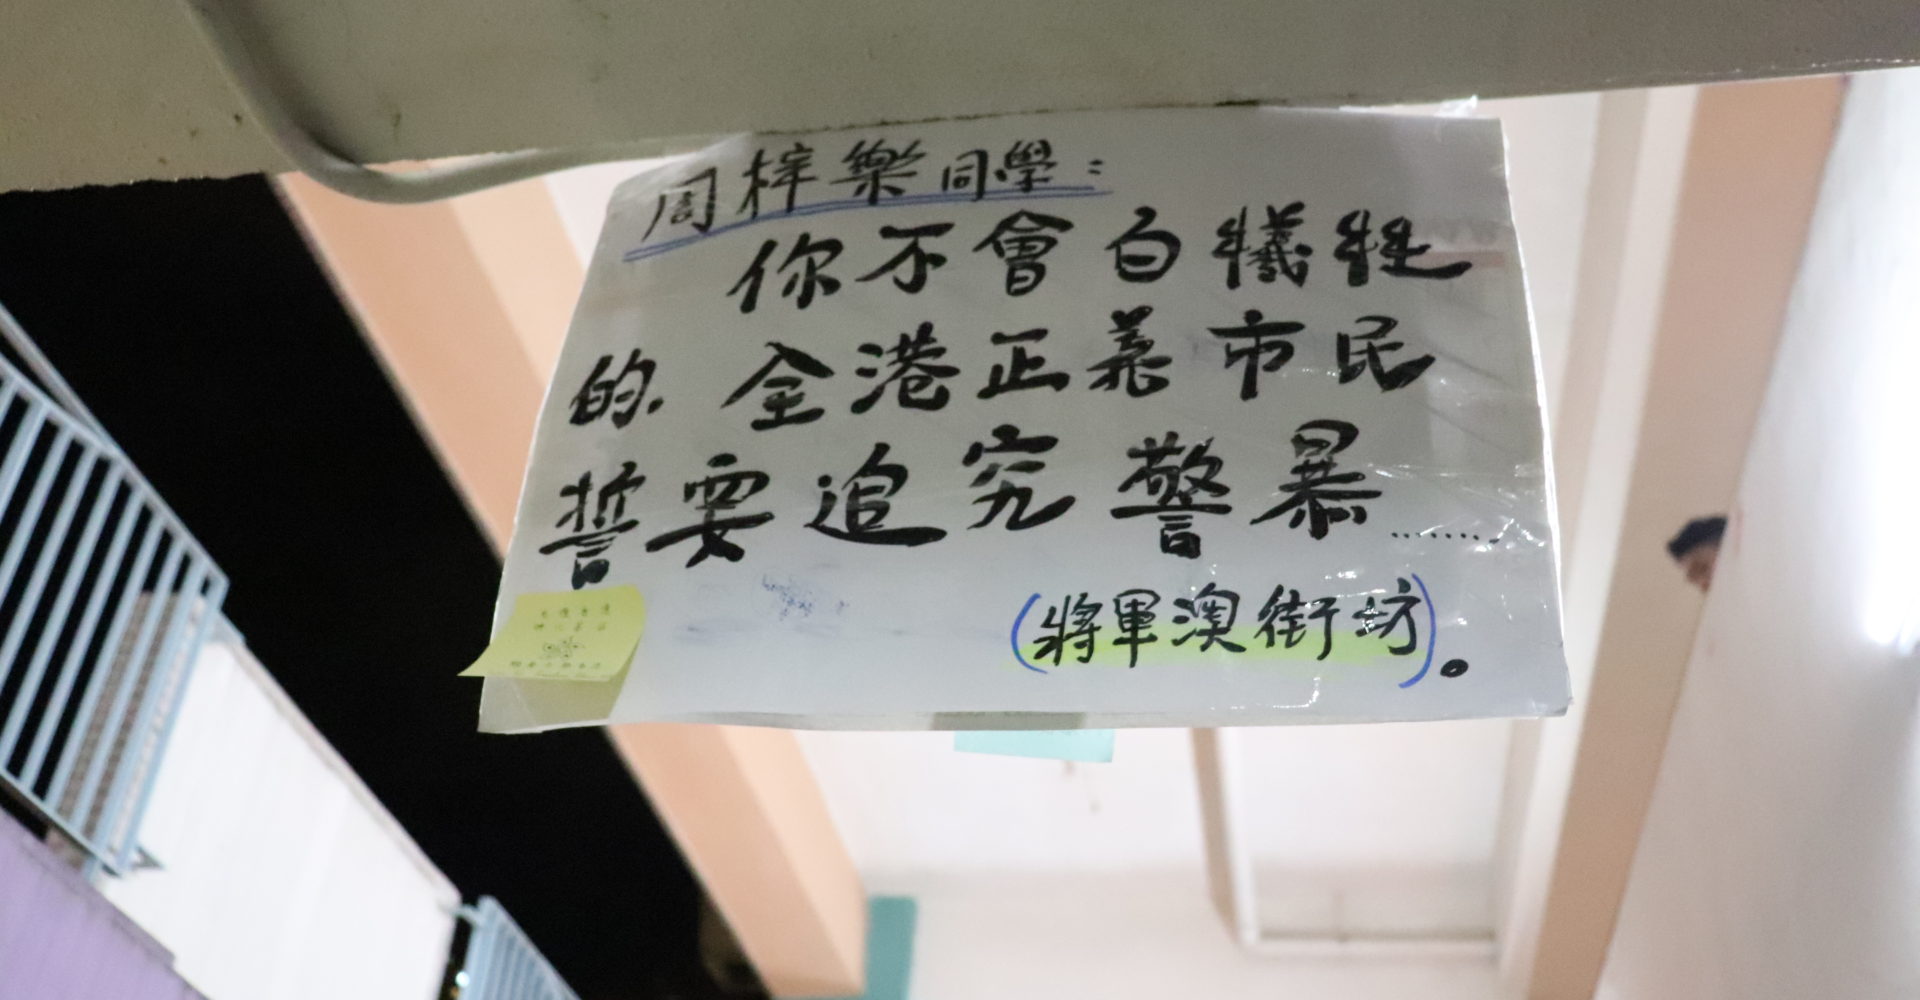 周梓樂同學：
你不會白犧牲
的. 全港正義市民
誓要追究警暴………
(將軍澳街坊)。